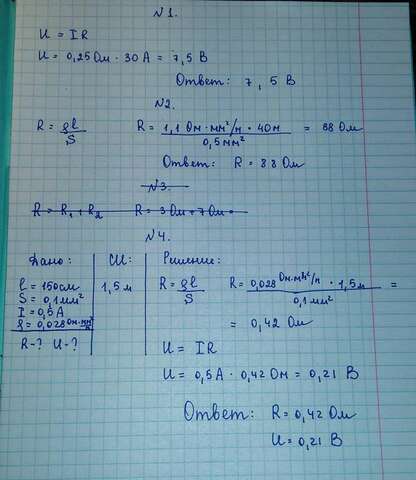 №1.
U = IR
U = 0,25 Ом · 30 А = 7,5 В
Ответ: 7,5 В
№2.
R = ρl/S R = 1,1 Ом·мм²/м · 40м / 0,5 мм² = 88 Ом
Ответ: R = 88 Ом
№3.
R = R₁ + R₂ R = 3 Ом + 7 Ом =
№4.
Дано: СИ: Решение:
l = 150см 1,5 м R = ρl/S R = 0,028 Ом·мм²/м · 1,5 м / 0,1 мм² =
S = 0,1 мм²
I = 0,5 А
ρ = 0,028 Ом·мм²/м = 0,42 Ом
R-? U-?
U = IR
U = 0,5 А · 0,42 Ом = 0,21 В
Ответ: R = 0,42 Ом
U = 0,21 В